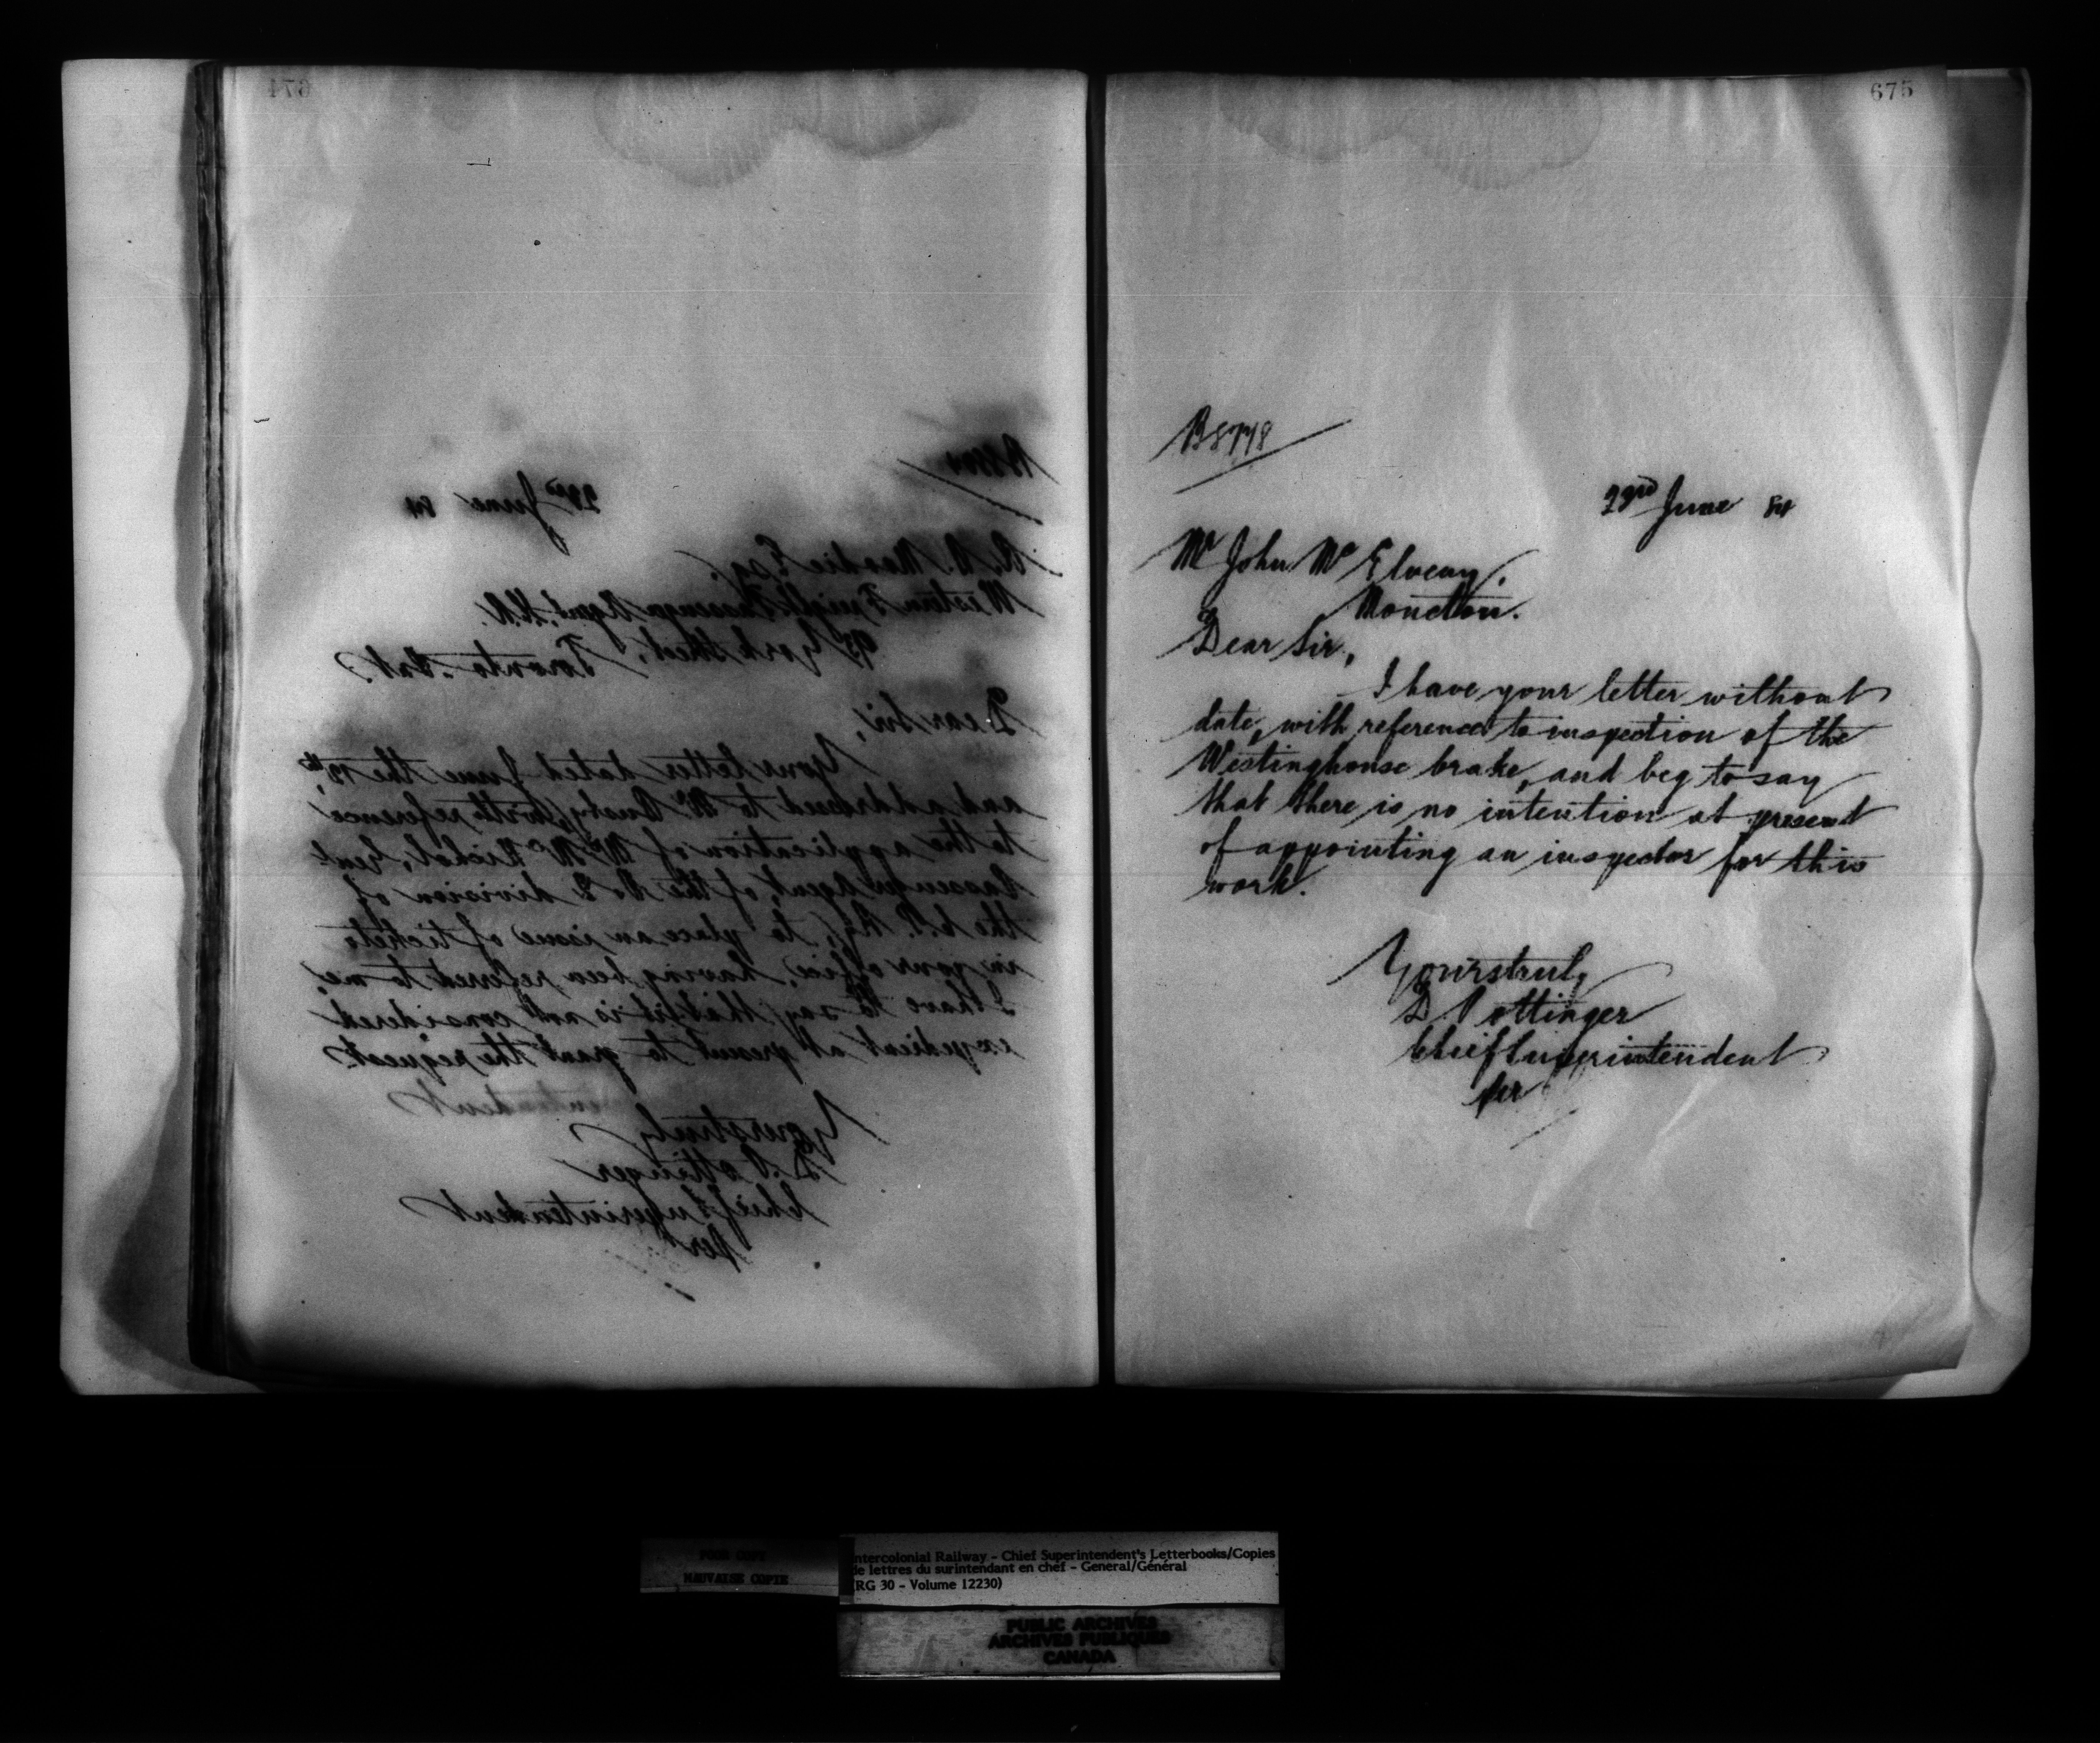 674
23rd June 84
R. A. Moodie Esq,
Western Freight Passenger Agent,
93 York Street, Toronto
Dear Sir,
Your letter dated June the
and addressed to Mr Busby, with reference
to the application of Mr McNichol, Genl
Passenger Agent, of the division of
the C.P. Ry, to place an issue of tickets
in your office, having been referred to me,
I have to say that it is not considered
expedient at present to grant the request
Yours truly
D. Pottinger
Chief Superintendent
Per
675
B8778
23rd June 84
Mr John McElveny,
Moncton.
Dear Sir,
I have your letter without
date, with reference to inspection of the
Westinghouse brake, and beg to say
that there is no intention at present
of appointing an inspector for this
work.
Yours truly
D Pottinger
Chief Superintendent
Per
POOR COPY
MAUVAISE COPIE
ntercolonial Railway - Chief Superintendent's Letterbooks/Copies
de lettres du surintendant en chef - General/Général
(RG 30 - Volume 12230)
PUBLIC ARCHIVES
ARCHIVES PUBLIQUES
CANADA